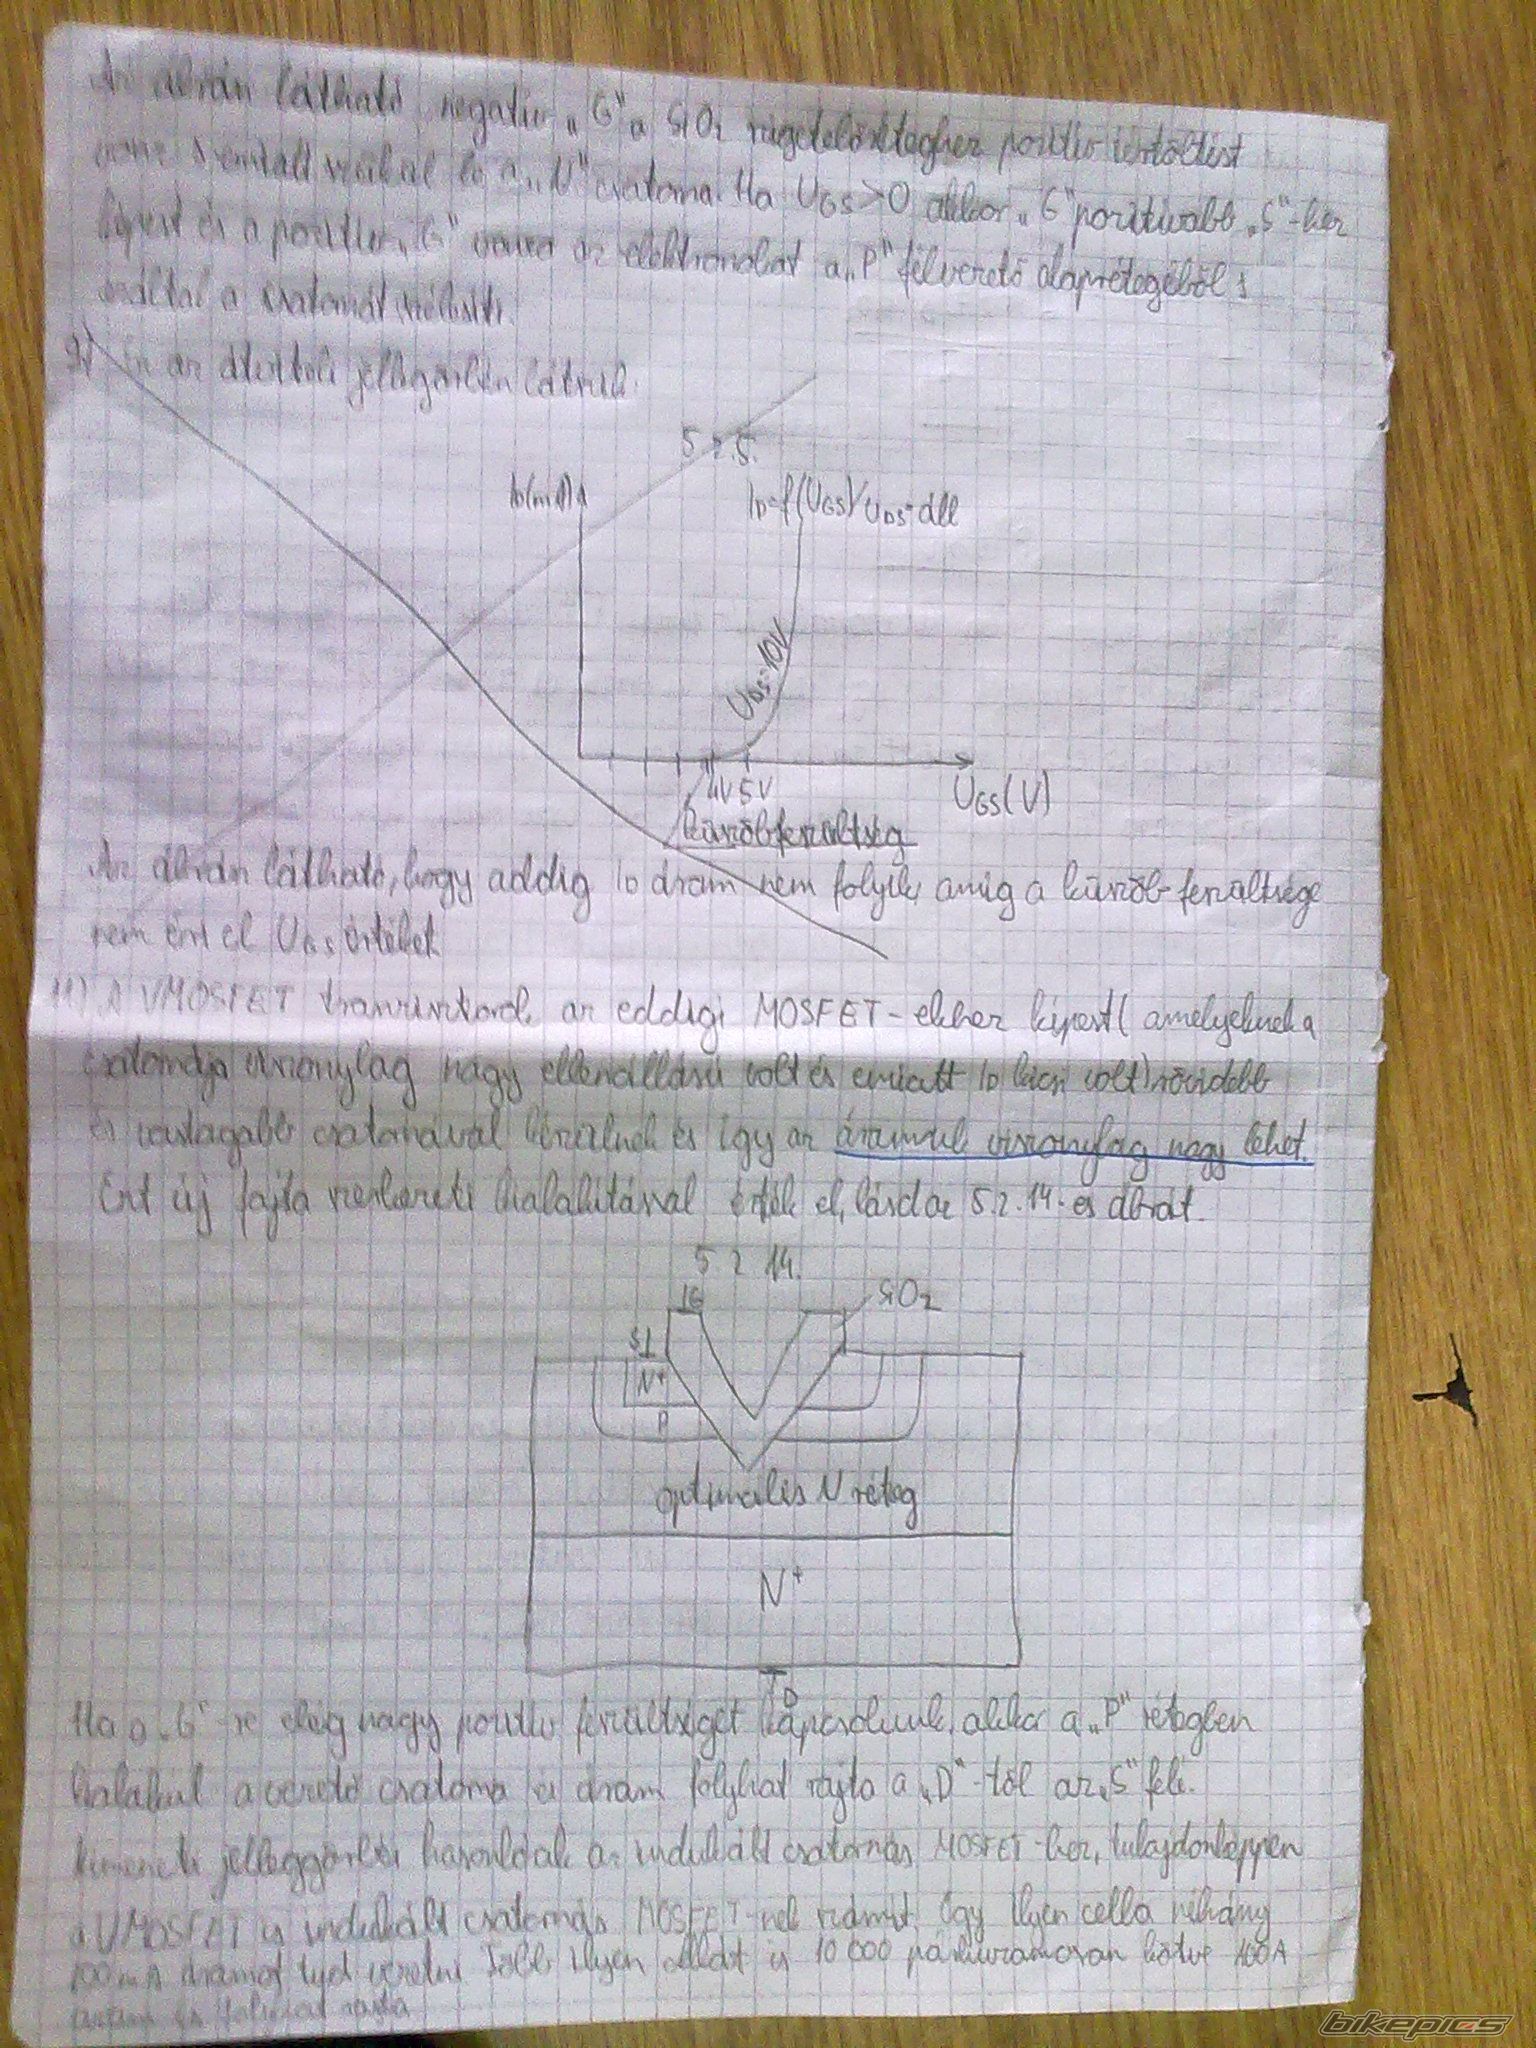 Az ábrán látható negatív „G" a SiO2 szigetelőréteghez pozitív
le a „N" csatorna. Ha UGS>0 akkor „G" pozitívabb „S"-hez
képest és a pozitív „G" vonzza az elektronokat a „P" félvezető alaprétegéből s
ezáltal a csatornát szélesíti.
9) Ez az átviteli jelleggörbén látszik.
5.2.5.
ID(mA)
ID=f(UGS)/UDS=áll
UDS=10V
4V 5V
UGS(V)
küszöbfeszültség
Az ábrán látható, hogy addig ID áram nem folyik, amíg a küszöb-feszültsége
nem éri el UGS értéket
11) A VMOSFET tranzisztorok az eddigi MOSFET-ekhez képest( amelyeknek a
csatornája viszonylag nagy ellenállású volt és emiatt ID kicsi volt) rövidebb
és vastagabb csatornával készülnek és így az áramuk viszonylag nagy lehet.
Ezt új fajta szerkezeti kialakítással érték el, lásd az 5.2.14-es ábrát.
5 2 14.
G
SiO2
S
N+
P
optimális N réteg
N+
D
Ha a „G"-re elég nagy pozitív feszültséget kapcsolunk, akkor a „P" rétegben
kialakul a vezető csatorna és áram folyhat rajta a „D"-től az „S" felé.
Kimeneti jelleggörbéi hasonlóak az indukált csatornás MOSFET-hez, tulajdonképpen
a VMOSFET is indukált csatornás MOSFET-nek számít. Egy ilyen cella néhány
100mA áramot tud vezetni. Több ilyen cellát is 10 000 párhuzamosan kötve 100A
áram is folyhat rajta